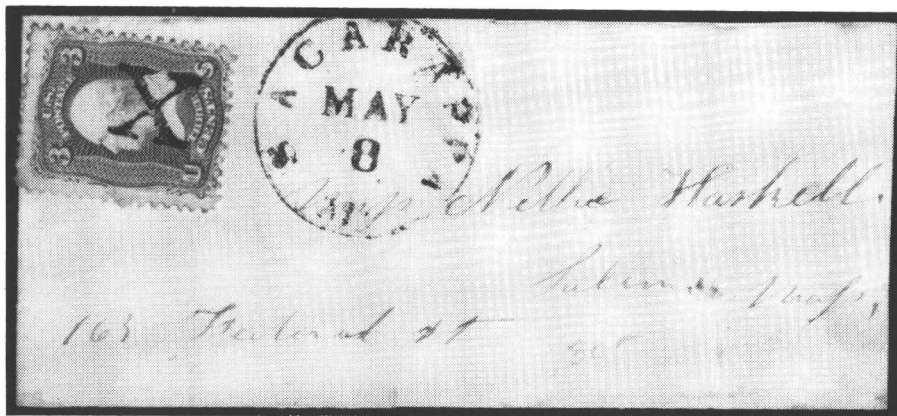 3 3
U.S. POSTAGE
THREE CENTS
U S
SACARAPPA
MAY
8
Miss Nellie Haskell.
Salem Mass,
163 Federal St